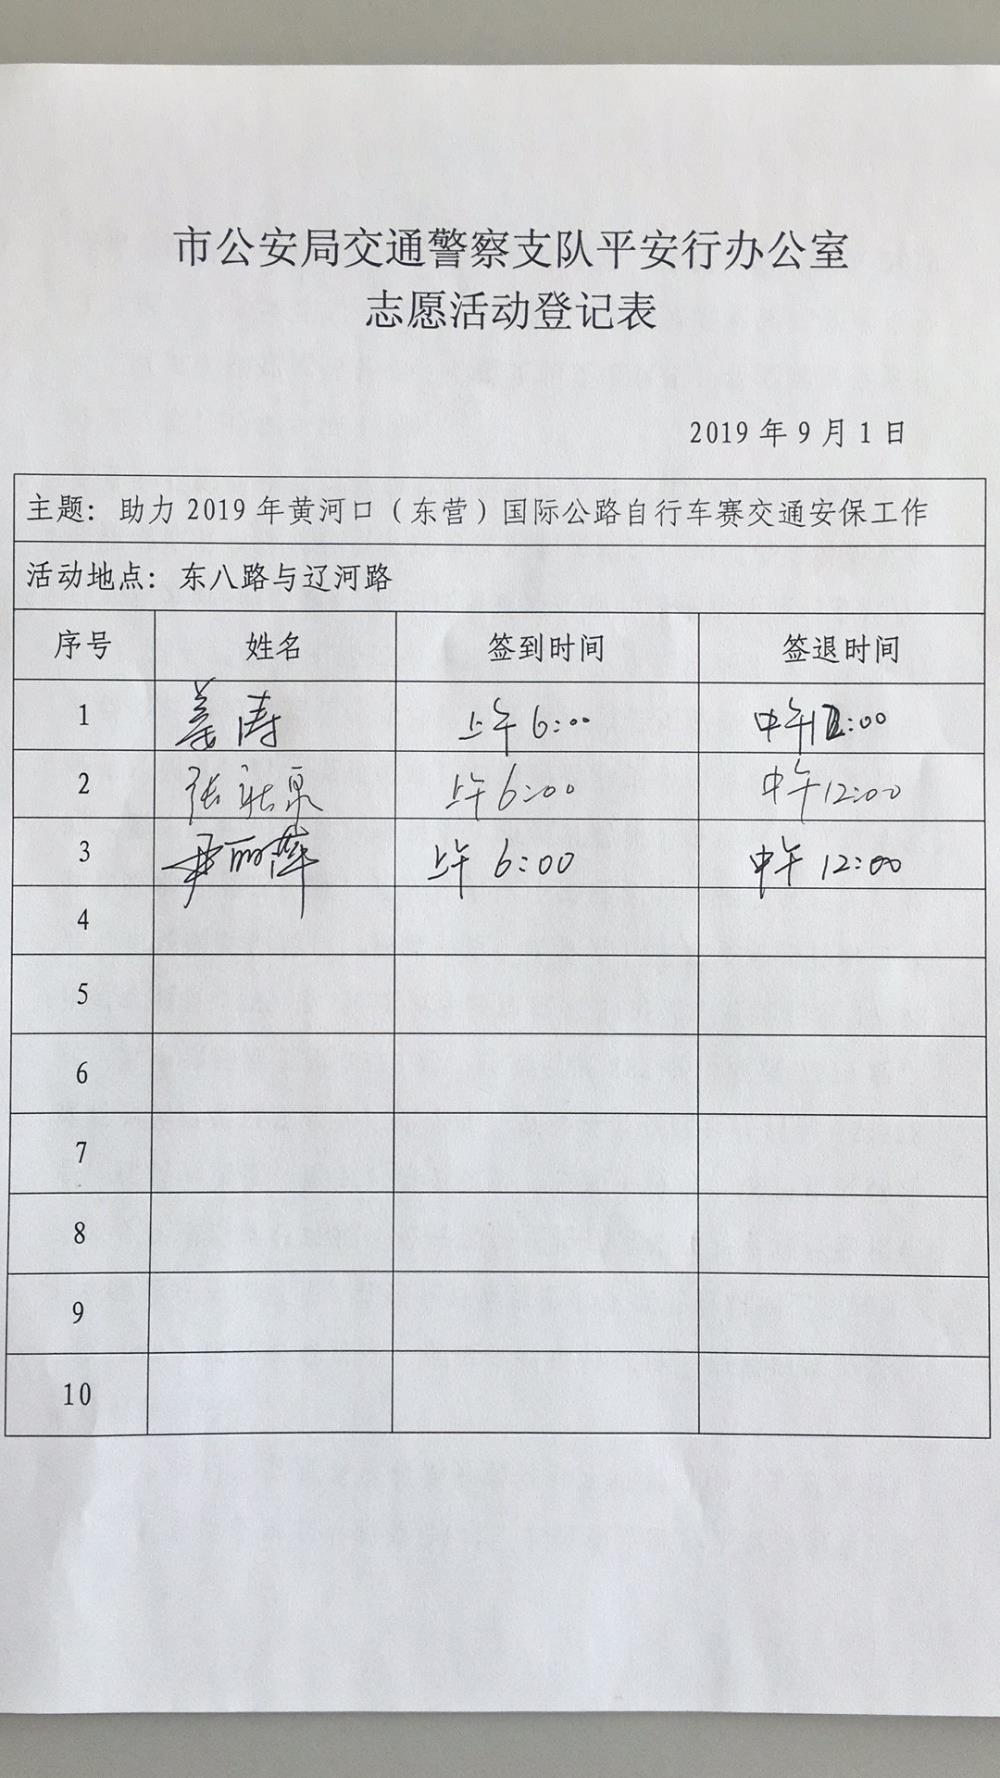 市公安局交通警察支队平安行办公室
志愿活动登记表
2019年9月1日
主题：助力2019年黄河口（东营）国际公路自行车赛交通安保工作
活动地点：东八路与辽河路
序号 姓名 签到时间 签退时间
1 姜涛 上午6:00 中午12:00
2 张 泉 上午6:00 中午12:00
3 尹丽萍 上午6:00 中午12:00
4
5
6
7
8
9
10